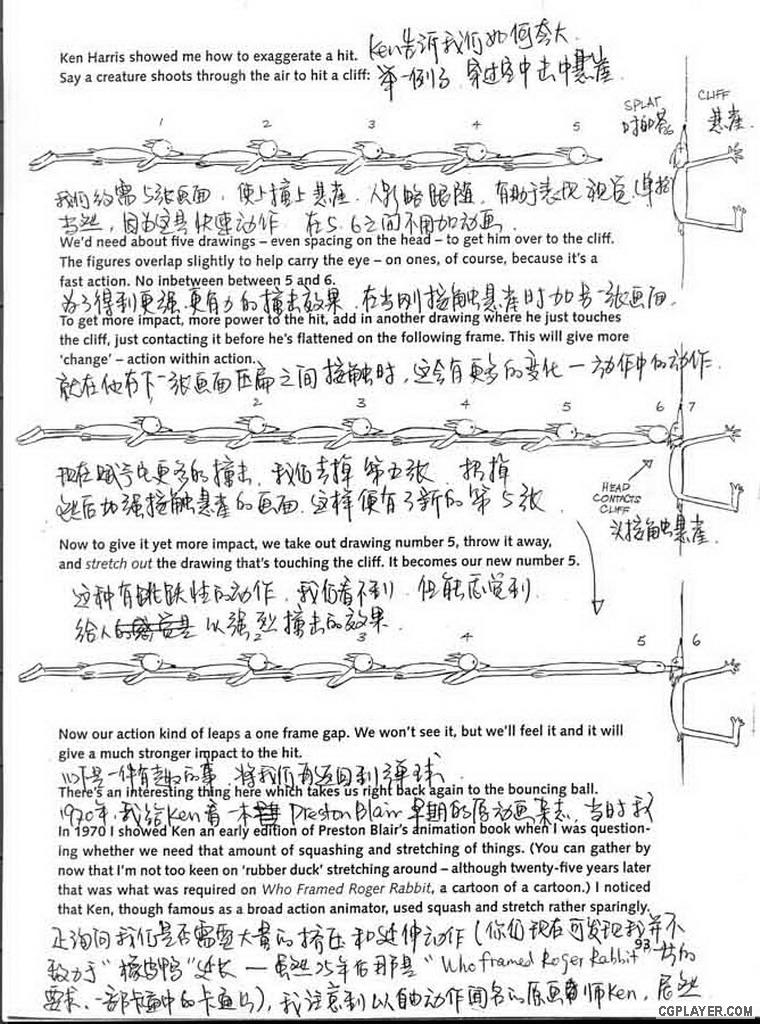 Ken Harris showed me how to exaggerate a hit. Ken告诉我们如何夸大
Say a creature shoots through the air to hit a cliff: 举一例子 穿过空中击中悬崖
SPLAT
CLIFF
悬崖
1 2 3 4 5
我们约需5张画面,使上撞上悬崖.人影略跟随,有助于表现视觉
当然,因为这是快速动作.在5.6之间不用加动画.
We'd need about five drawings – even spacing on the head – to get him over to the cliff.
The figures overlap slightly to help carry the eye – on ones, of course, because it's a
fast action. No inbetween between 5 and 6.
为了得到更强.更有力的撞击效果.在当刚接触悬崖时加多一张画面.
To get more impact, more power to the hit, add in another drawing where he just touches
the cliff, just contacting it before he's flattened on the following frame. This will give more
'change' – action within action.
就在他有下一张画面压扁之间接触时,这会有更多的变化—动作中的动作.
2 3 4 5 6 7
现在赋予它更多的撞击,我们去掉第五张.扔掉
然后加强接触悬崖的画面.这样便有了新的第5张
HEAD
CONTACTS
CLIFF
头接触悬崖.
Now to give it yet more impact, we take out drawing number 5, throw it away,
and stretch out the drawing that's touching the cliff. It becomes our new number 5.
这种有跳跃性的动作.我们看不到.但能感觉到.
给人以强烈撞击的效果.
2 3 4 5 6
Now our action kind of leaps a one frame gap. We won't see it, but we'll feel it and it will
give a much stronger impact to the hit.
以下是一件有趣的事.将我们再返回到弹球
There's an interesting thing here which takes us right back again to the bouncing ball.
1970年.我给Ken看一本 Preston Blair 早期的原动画杂志,当时我
In 1970 I showed Ken an early edition of Preston Blair's animation book when I was question-
ing whether we need that amount of squashing and stretching of things. (You can gather by
now that I'm not too keen on 'rubber duck' stretching around – although twenty-five years later
that was what was required on Who Framed Roger Rabbit, a cartoon of a cartoon.) I noticed
that Ken, though famous as a broad action animator, used squash and stretch rather sparingly.
正询问我们是否需要大量的挤压和延伸动作(你们现在可发现我并不
93
致力于"橡皮鸭"延长—虽然25年后那是"Who framed Roger Rabbit"一片的
要求.一部卡通中的卡通片),我注意到以自由动作闻名的原画师Ken,居然
CGPLAYER.COM